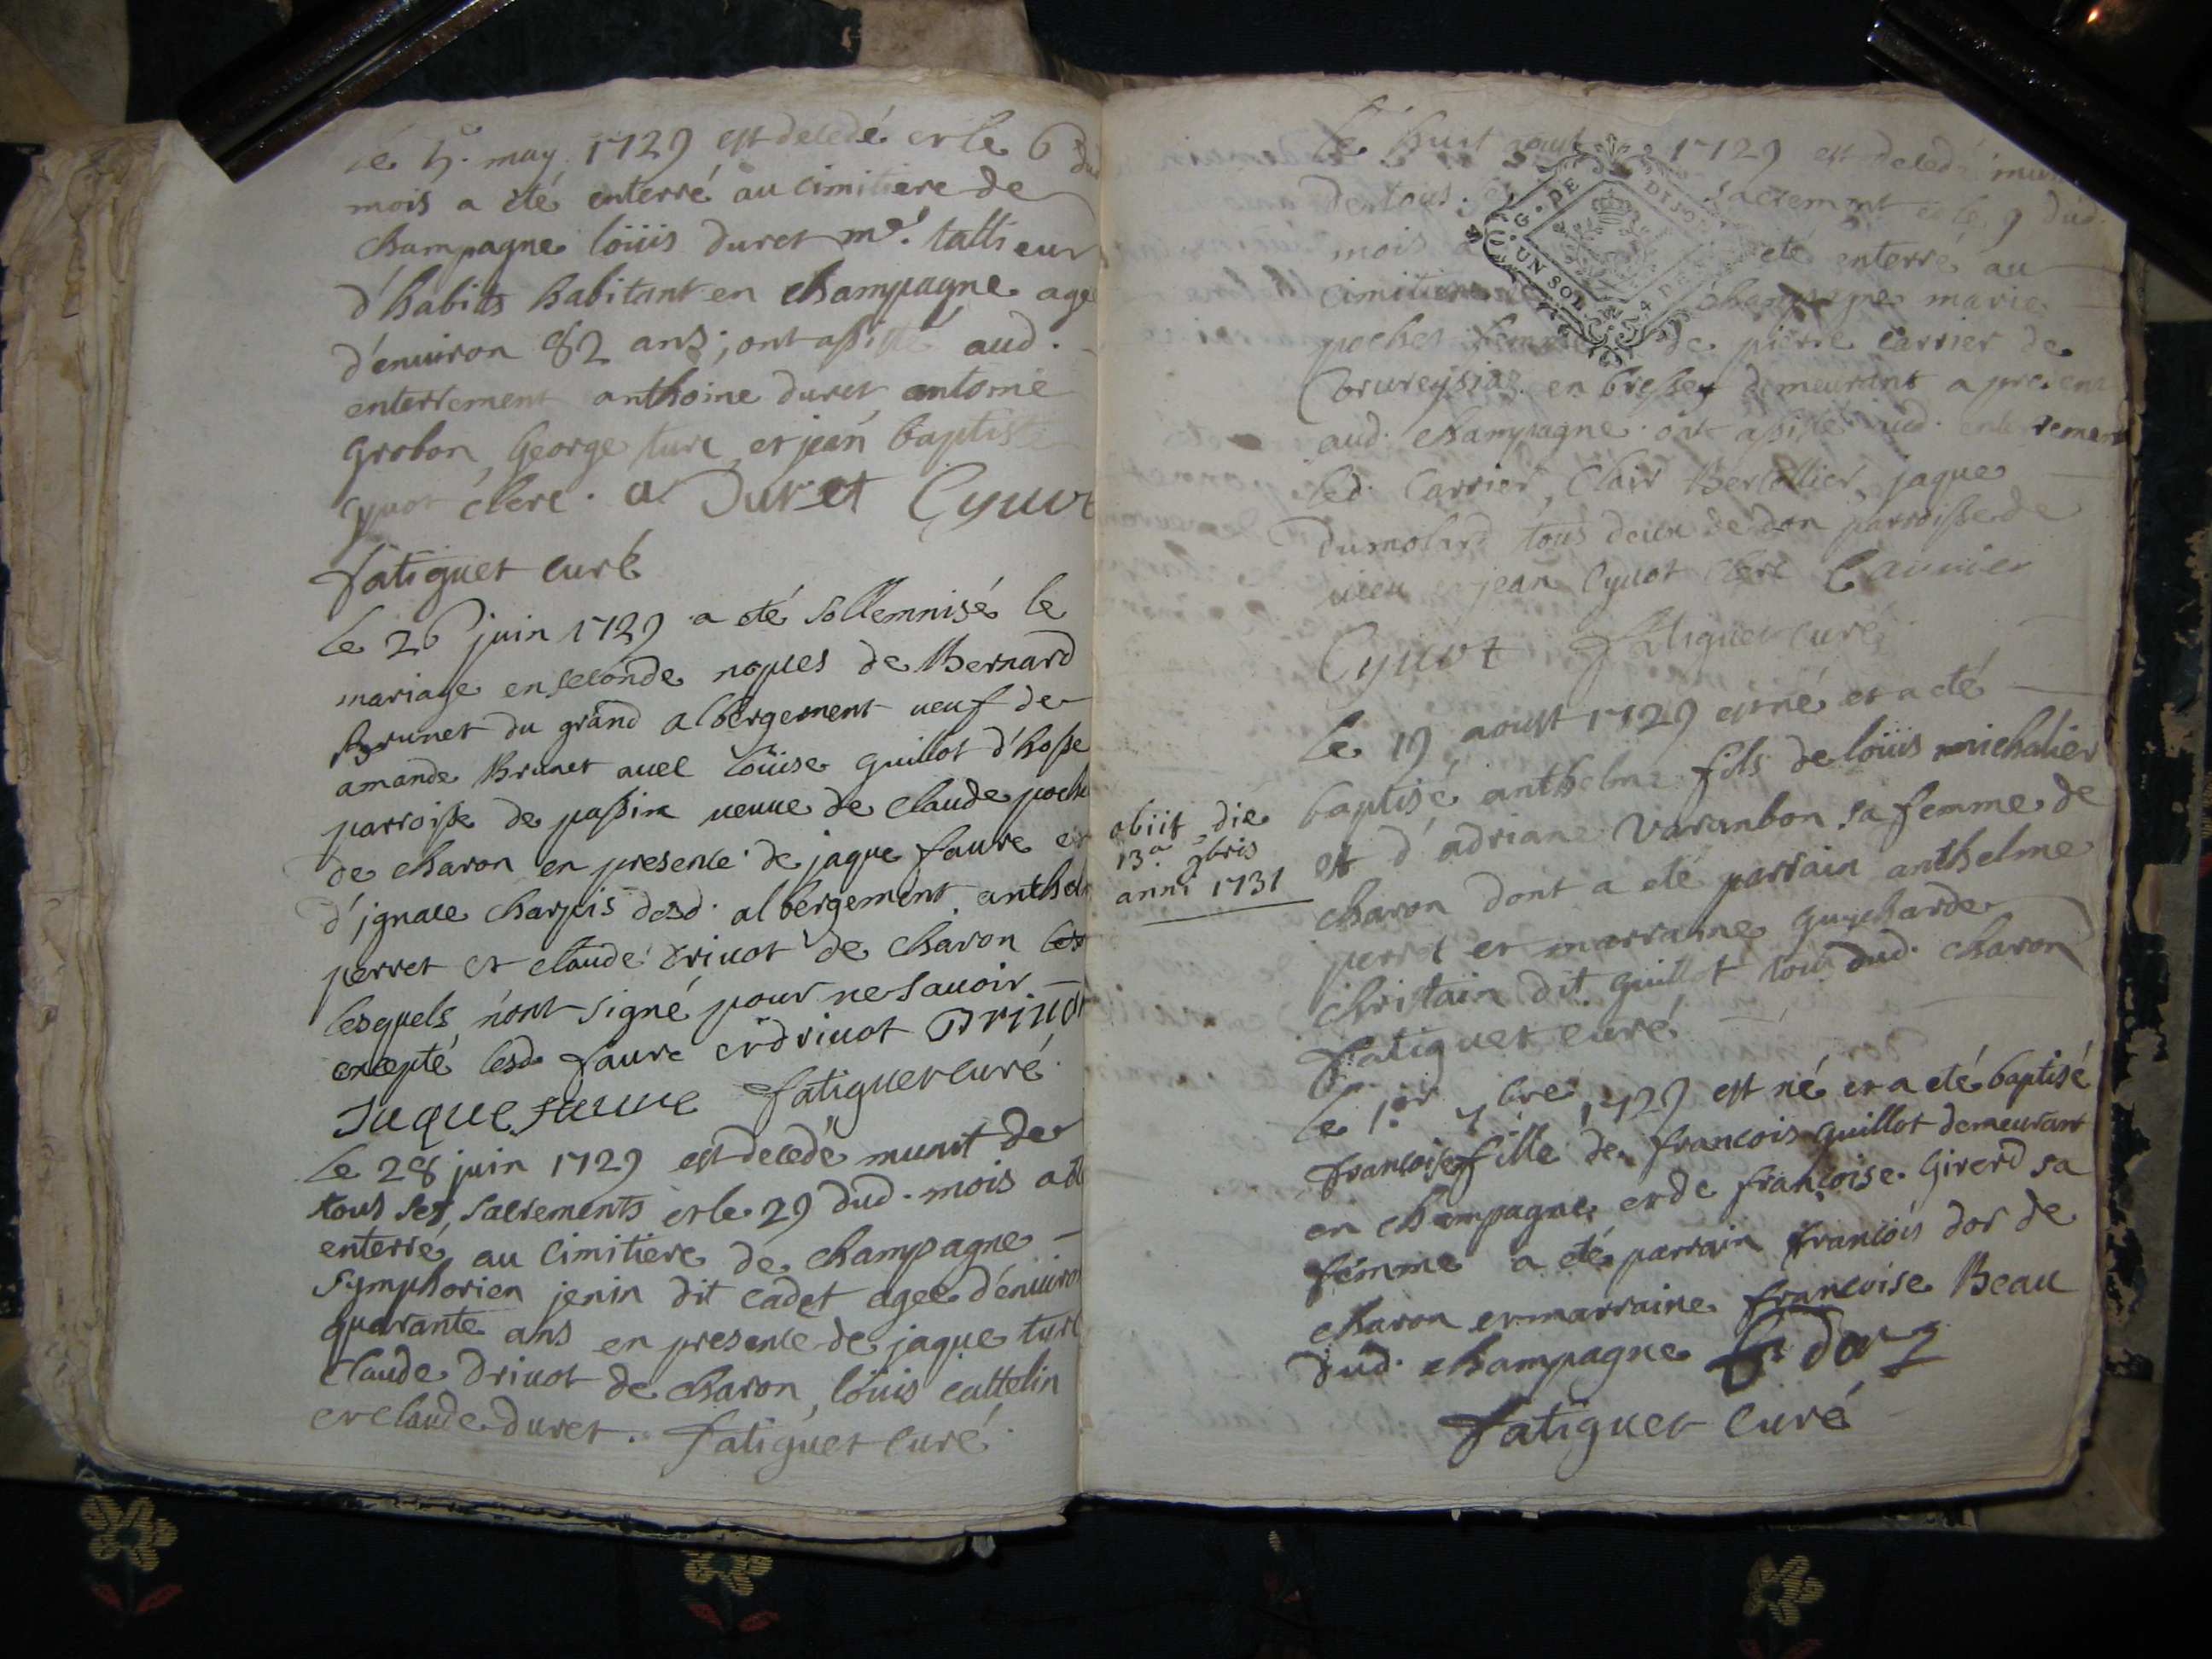 le 5. may 1729 est decedé et le 6 dud
mois a été enterré au cimitiere de
champagne loüis duret me. tallieur
d'habits habitant en champagne agé
d'environ 82 ans; ont assisté aud.
enterrement anthoine duret antoine
grobon, george turc, et jean baptiste
cyuot clerc. a Duret Cyuot
fatiguet curé
le 26 juin 1729 a eté sollemnisé le
mariage en seconde nopces de Bernard
Brunet du grand albergement ueuf de
amande Brunet auec loüise guillot d'hosse
parroisse de passin ueuue de claude poche
de charon en presence de jaque faure et
d'jgnace charpis dud. albergement anthel
perret et claude driuot de charon
lesquels n'ont signé pour ne sauoir
excepté lesd. faure et driuot Driuot
Jaque faure fatiguet curé
le 28 juin 1729 est decedé munit de
tous ses sacrements et le 29 dud. mois a eté
enterré au cimitiere de champagne
symphorien jenin dit cadet agee d'enuiron
quarante ans en presence de jaque turc
claude driuot de charon, loüis cattelin
et claude duret. fatiguet curé
le huit aout 1729 est decedé muni
de tous sacrement et le 9 dud.
mois a eté enterré au
cimitiere champagne marie
pochet femme de pierre carrier de
en bressey demeurant a present
aud. champagne ont assisté aud. enterrement
led. Carrier, Clair Bertellier, jaque
dumolard tous deux de don parroisse de
uieu et jean Cyuot clerc
Cyuot fatiguet curé
G. DE DIJON
UN SOL 4 DE.
le 19 aoust 1729 est né et a eté
baptisé anthelme fils de loüis michalier
et d'adriane Varanbon sa femme de
charon dont a eté parrain anthelme
perret et marraine guycharde
christain dit guillot tous dud. charon
fatiguet curé
obiit die
13a 9bris
anni 1731
le 1.er 7bre 1729 est né et a eté baptisé
francoise fille de francois guillot demeurant
en champagne et de françoise Girerd sa
femme a eté parrain françois dor de
charon et marraine francoise Beau
dud. champagne f. dor
fatiguet curé